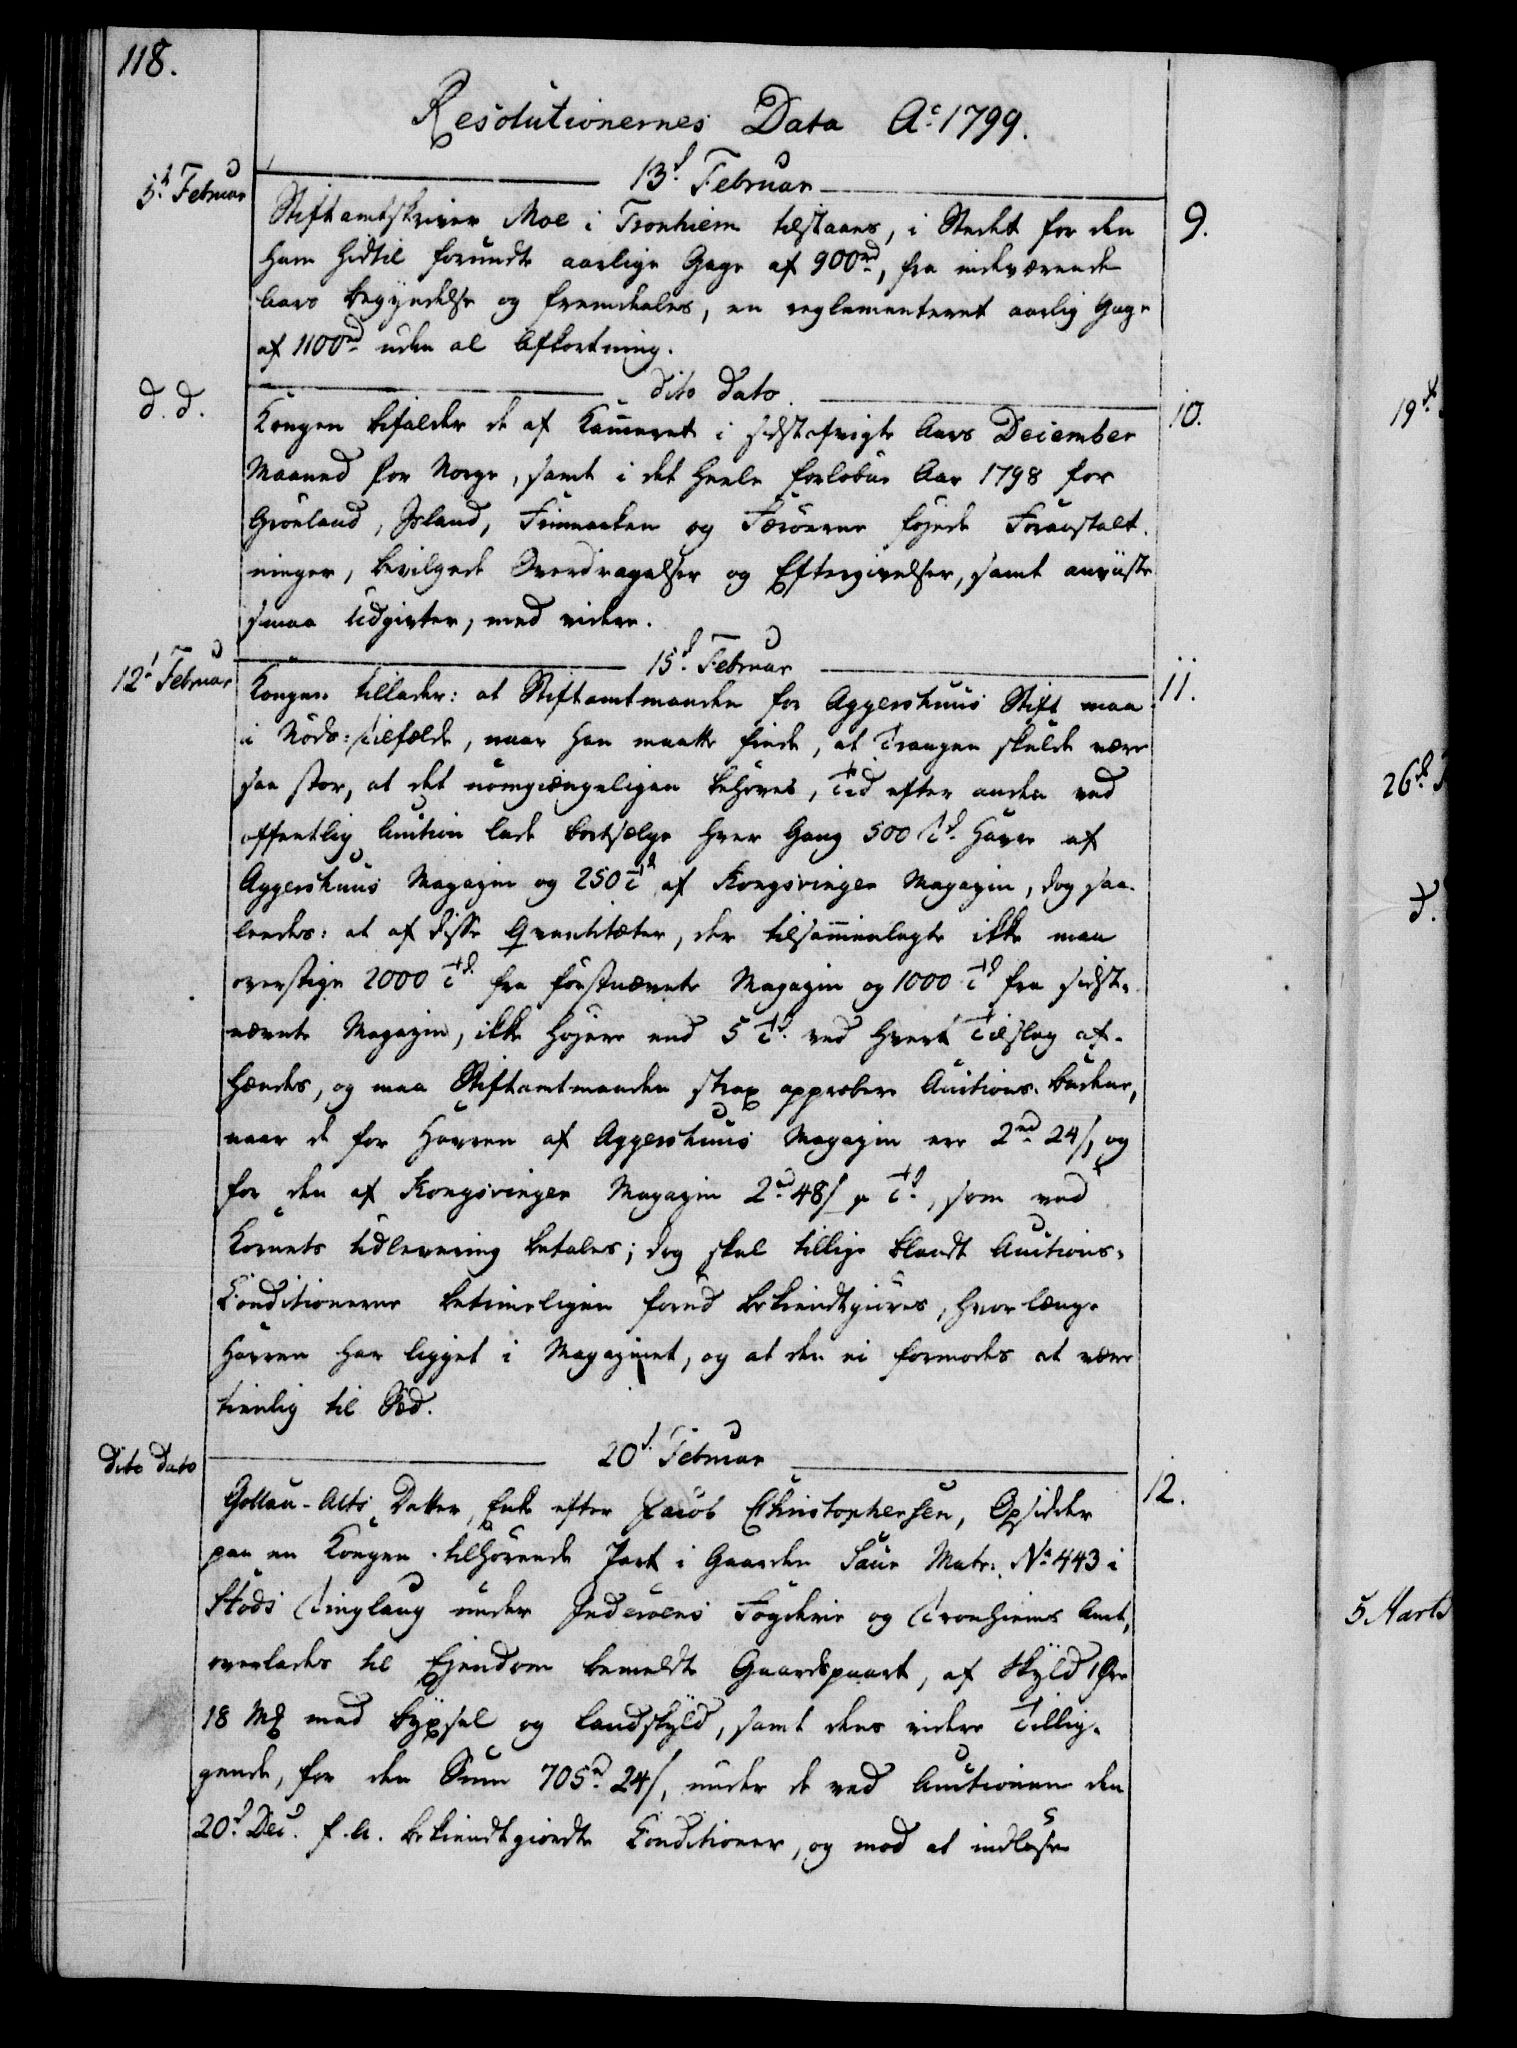 118.
Resolutionernes Data Ao 1799.
5t Februar
13d Februar
Stiftamtskriver Moe i Tronhiem tilstaaes, i Stedet for den
9.
ham hidtil forundte aarlige Gage af 900rd, fra indeværende
Aars Begyndelse og fremdeles, en reglementeret aarlig Gage
af 1100rd uden al Afkortning.
d. d.
dito Dato.
Kongen bifalder de af Kammeret i sidstafvigte Aars December
10.
Maaned for Norge, samt i det heele forløbne Aar 1798 for
Grönland, Island, Finmarken og Færöerne föjede Foranstalt-
ninger, bevilgede Overdragelser og Eftergivelser, samt anviiste
smaa Udgivter, med videre.
12t Februar
15d Februar
Kongen tillader: at Stiftamtmanden for Aggershuus Stift maa
11.
i Nöds-Tilfælde, naar han maatte finde, at Trangen skulde være
saa stor, at det uomgiængeligen behöves, Tid efter anden ved
offentlig Auction lade bortsælge hver Gang 500 Tdr Havre af
Aggershuus Magazin og 250 Td af Kongsvinger Magazin, dog saa-
ledes: at af disse Qvantiteter, der tilsammenlagte ikke maa
overstige 2000 Td fra förstnævnte Magazin og 1000 Td fra sidst-
nævnte Magazin, ikke höjere end 5 Td ved hvert Tilslag af-
hændes, og maa Stiftamtmanden strax approbere Auctions-Budene,
naar de for Havren af Aggershuus Magazin ere 2rd 24/, og
for den af Kongsvinger Magazin 2rd 48/ pr Td, som ved
Kornets Udlevering betales; dog skal tillige blandt Auctions-
Conditionerne betimeligen forud bekiendtgiöres, hvor længe
Havren har ligget i Magazinet, og at den ei formodes at være
tienlig til Sæd.
Dito Dato
20d Februar
Gollau-Alts Datter, Enke efter Jacob Christophersen, Opsidder
12.
paa en Kongen tilhörende Part i Gaarden Saur Matr: No 443 i
Støds Tinglaug under Inderöens Fogderie og Tronhiems Amt,
overlades til Ejendom bemeldte Gaardspart, af Skyld 1 Öre
18 Mk med Bÿxsel og Landskÿld, samt dens videre Tillig-
gende, for den Sum 705rd 24/, under de ved Auctionen den
20d Dec. f. A. bekiendtgiordte Conditioner, og mod at indlöse
19d
26d
d.
5 Marts